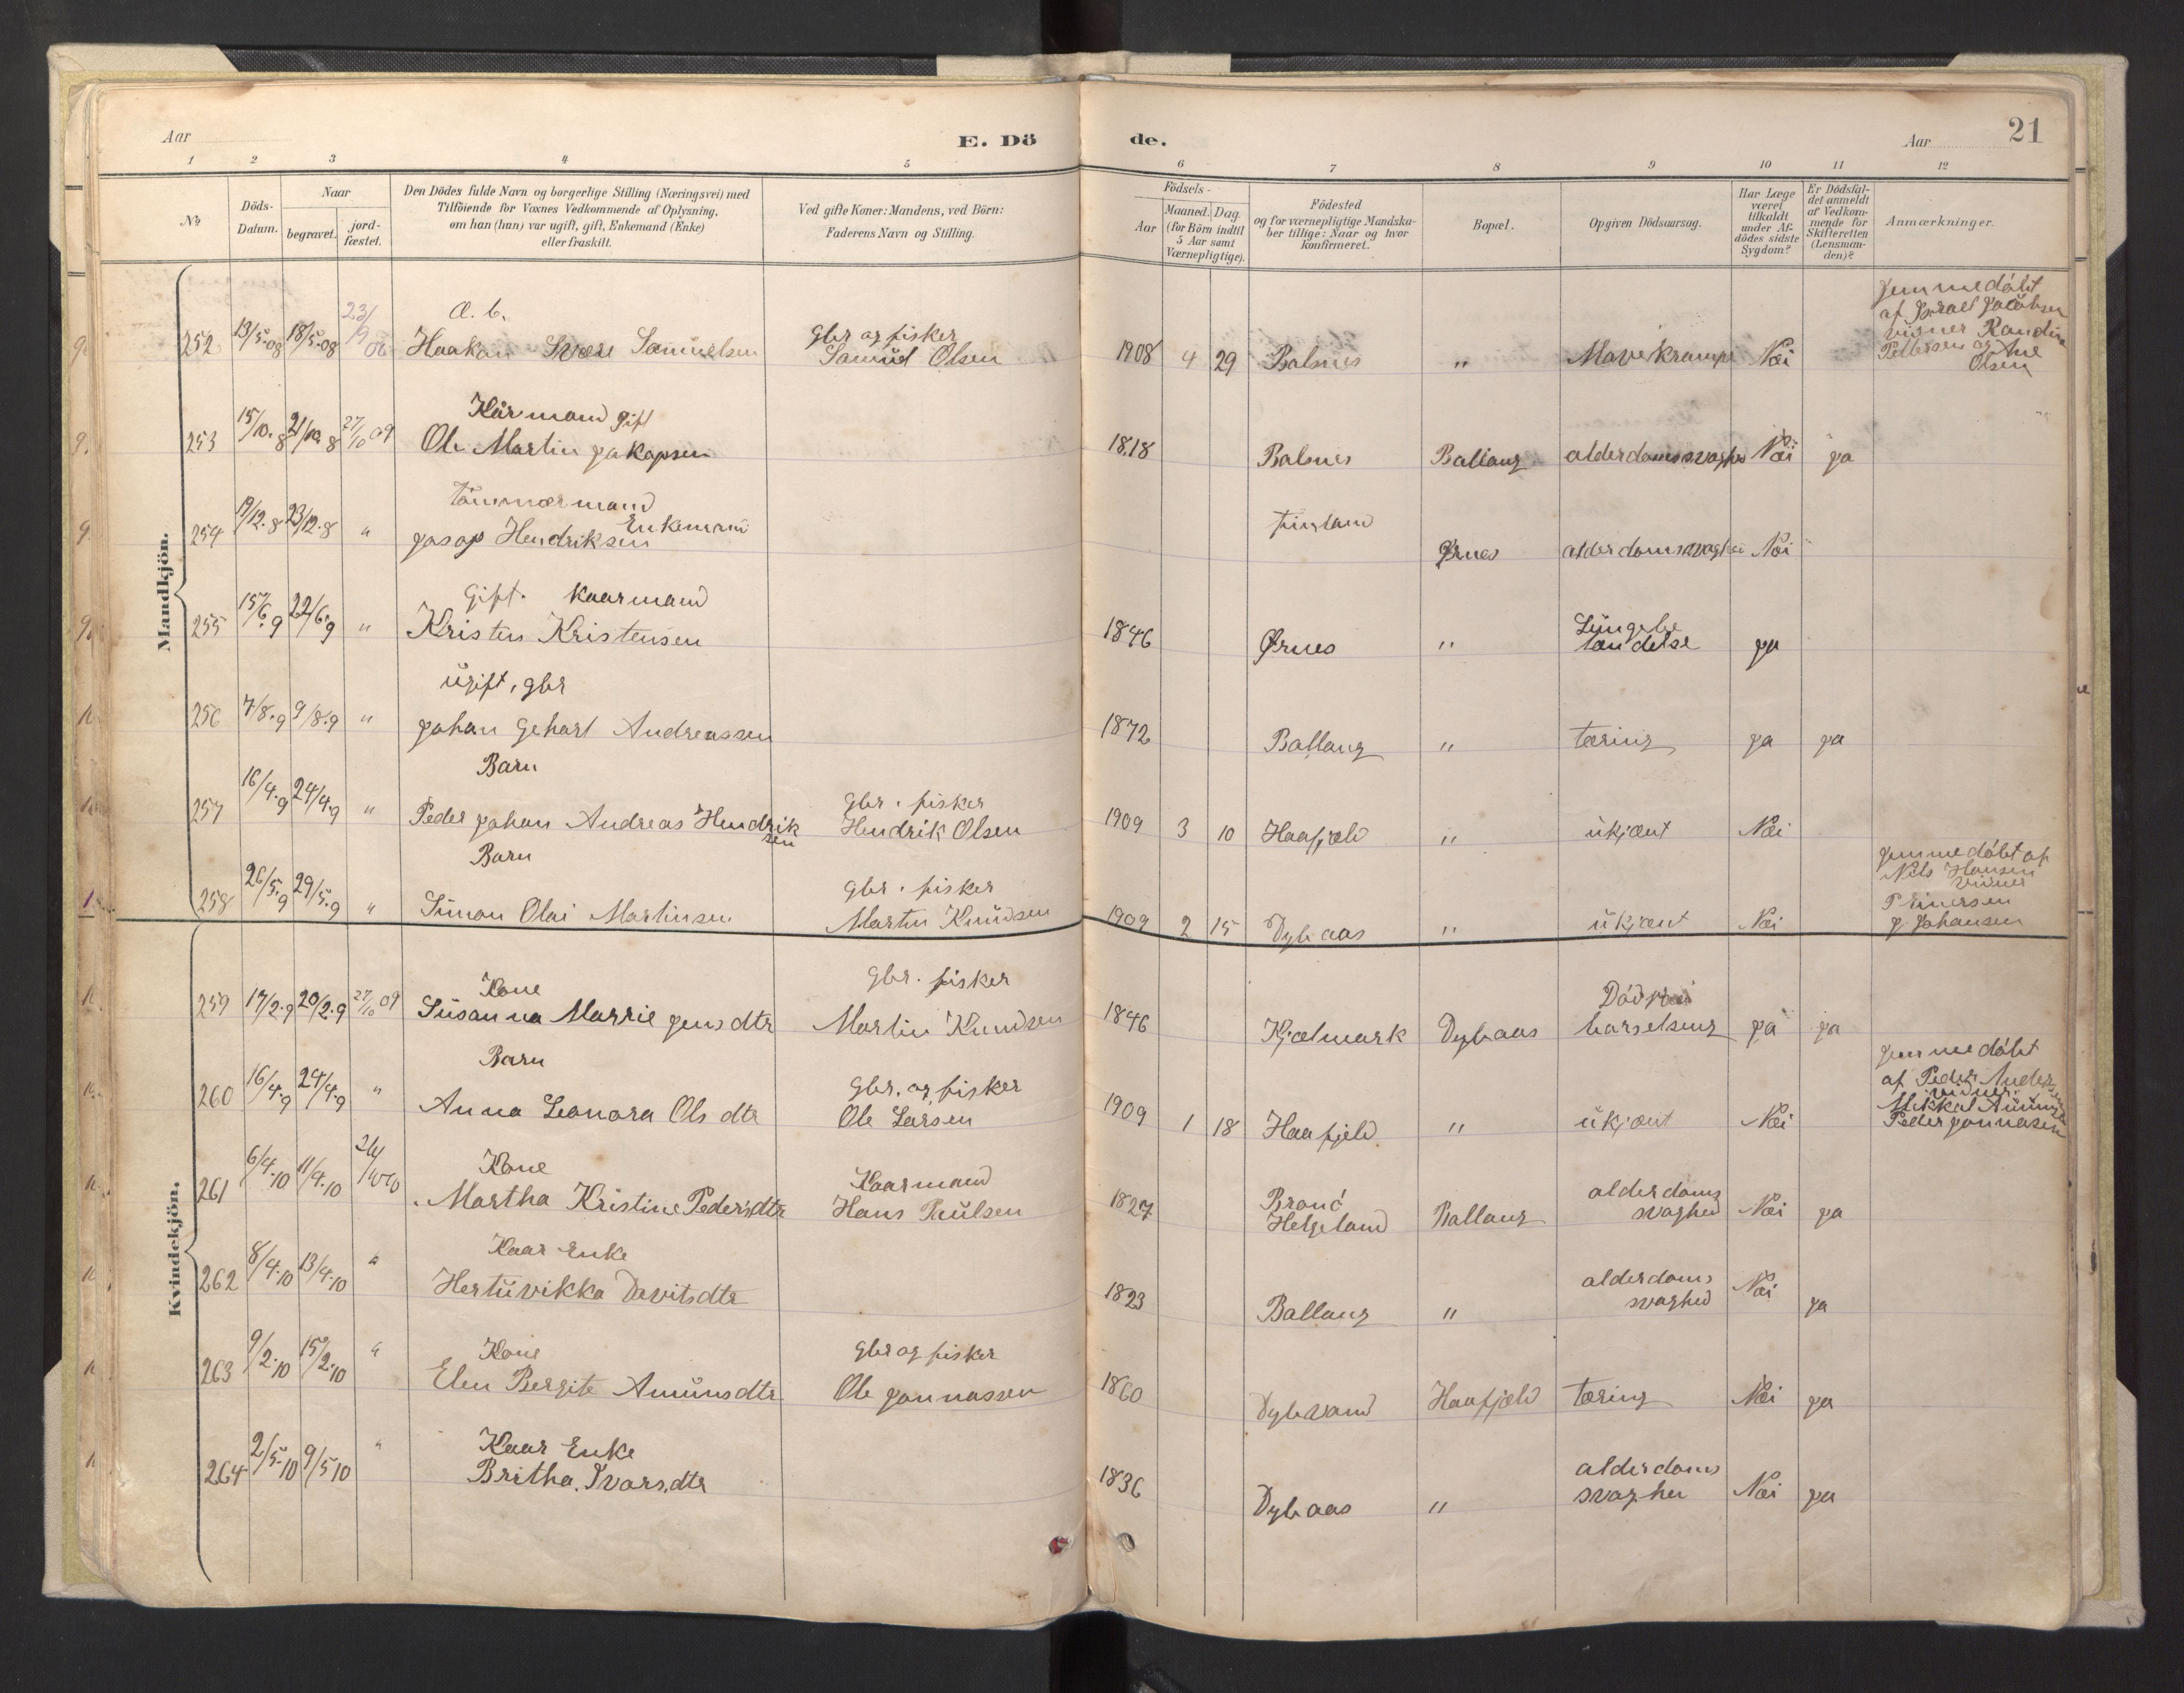 Aar
E. Dö
de.
Aar
21
1 2 3 4 5 6 7 8 9 10 11 12
No
Döds-Datum.
Naar
begravet.
jord-fæstet.
Den Dödes fulde Navn og borgerlige Stilling (Næringsvei) med
Tilföiende for Voxnes Vedkommende af Oplysning,
om han (hun) var ugift, gift, Enkemand (Enke)
eller fraskilt.
Ved gifte Koner: Mandens, ved Börn:
Faderens Navn og Stilling.
Födsels-
Aar
Maaned. Dag.
(for Börn indtil
5 Aar samt
Værnepligtige).
Födested
og for værnepligtige Mandska-
ber tillige: Naar og hvor
konfirmeret.
Bopæl.
Opgiven Dödsaarsag.
Har Læge
været
tilkaldt
under Af-
dödes sidste
Sygdom?
Er Dödsfal-
det anmeldt
af Vedkom-
mende for
Skifteretten
(Lensman-
den)?
Anmærkninger.
Mandkjön.
252 13/5-08 18/5-08 23/9 08
Haakon Sverre Samuelsen
Gbr og fisker
Samuel Olsen
1908 4 29 Balsnes " Mavekrampe Nei
Jemmedöbt
af Israel Jacobsen
vidner Randine
Pettersen og Ane
Olsen
253 15/10.8 21/10.8 27/10 09
Kårmand gift
Ole Martin Jakopsen
1818 Balsnes Ballang alderdomssvaghed Nei ja
254 19/12.8 23/12.8 "
tömmermand
Enkemand
Josop Hendriksen
finland
Ørnes alderdomssvaghed Nei
255 15/6.9 22/6.9 "
Gift. Kaarmand
Kristen Kristensen
1846 Ørnes " Lungebe
tændelse ja
256 7/8.9 9/8.9 "
ugift, gbr
Johan Gehart Andreassen
1872 Ballang " tæring ja ja
257 16/4.9 24/4.9 "
Barn
Peder Johan Andreas Hendrik
sen
Gbr. fisker
Hendrik Olsen
1909 3 10 Haafjeld " ukjent Nei
258 26/5.9 29/5.9 "
Barn
Simon Olai Martinsen
Gbr. fisker
Martin Knudsen
1909 2 15 Dybaas " ukjent Nei
Jemmedöbt af
Nils Hansen
vidner
P Einersen
J. Johansen
Kvindekjön.
259 17/2.9 20/2.9 27/10 09
Kone
Susanna Marrie Jensdtr
Gbr. fisker
Martin Knudsen
1846 Kjelmark Dybaas barselseng ja ja
260 16/4.9 24/4.9 "
Barn
Anna Leonora Olsdtr
Gbr. og fisker
Ole Larsen
1909 1 18 Haafjeld " ukjent Nei
Jemmedöbt
af Peder Ander
vidner:
Mikkal
Peder Jonnasen
261 6/4.10 11/4.10
Kone
Martha Kristine Pedersdtr
Kaarmand
Hans Paulsen
1827 Brønö
Helgeland Ballang alderdoms
svaghed Nei ja
262 8/4.10 13/4.10 "
Kaar Enke
Hertuvikka Davitsdtr
1823 Ballang " alderdoms
svaghed Nei ja
263 9/2.10 15/2.10 "
Kone
Elen Bergite Amunsdtr
Gbr og fisker
Ole Jonnassen
1860 Dybvand Haafjeld tæring Nei ja
264 2/5.10 9/5 10 "
Kaar Enke
Britha. Ivars.dtr
1836 Dybaas " alderdoms
svaghed Nei ja